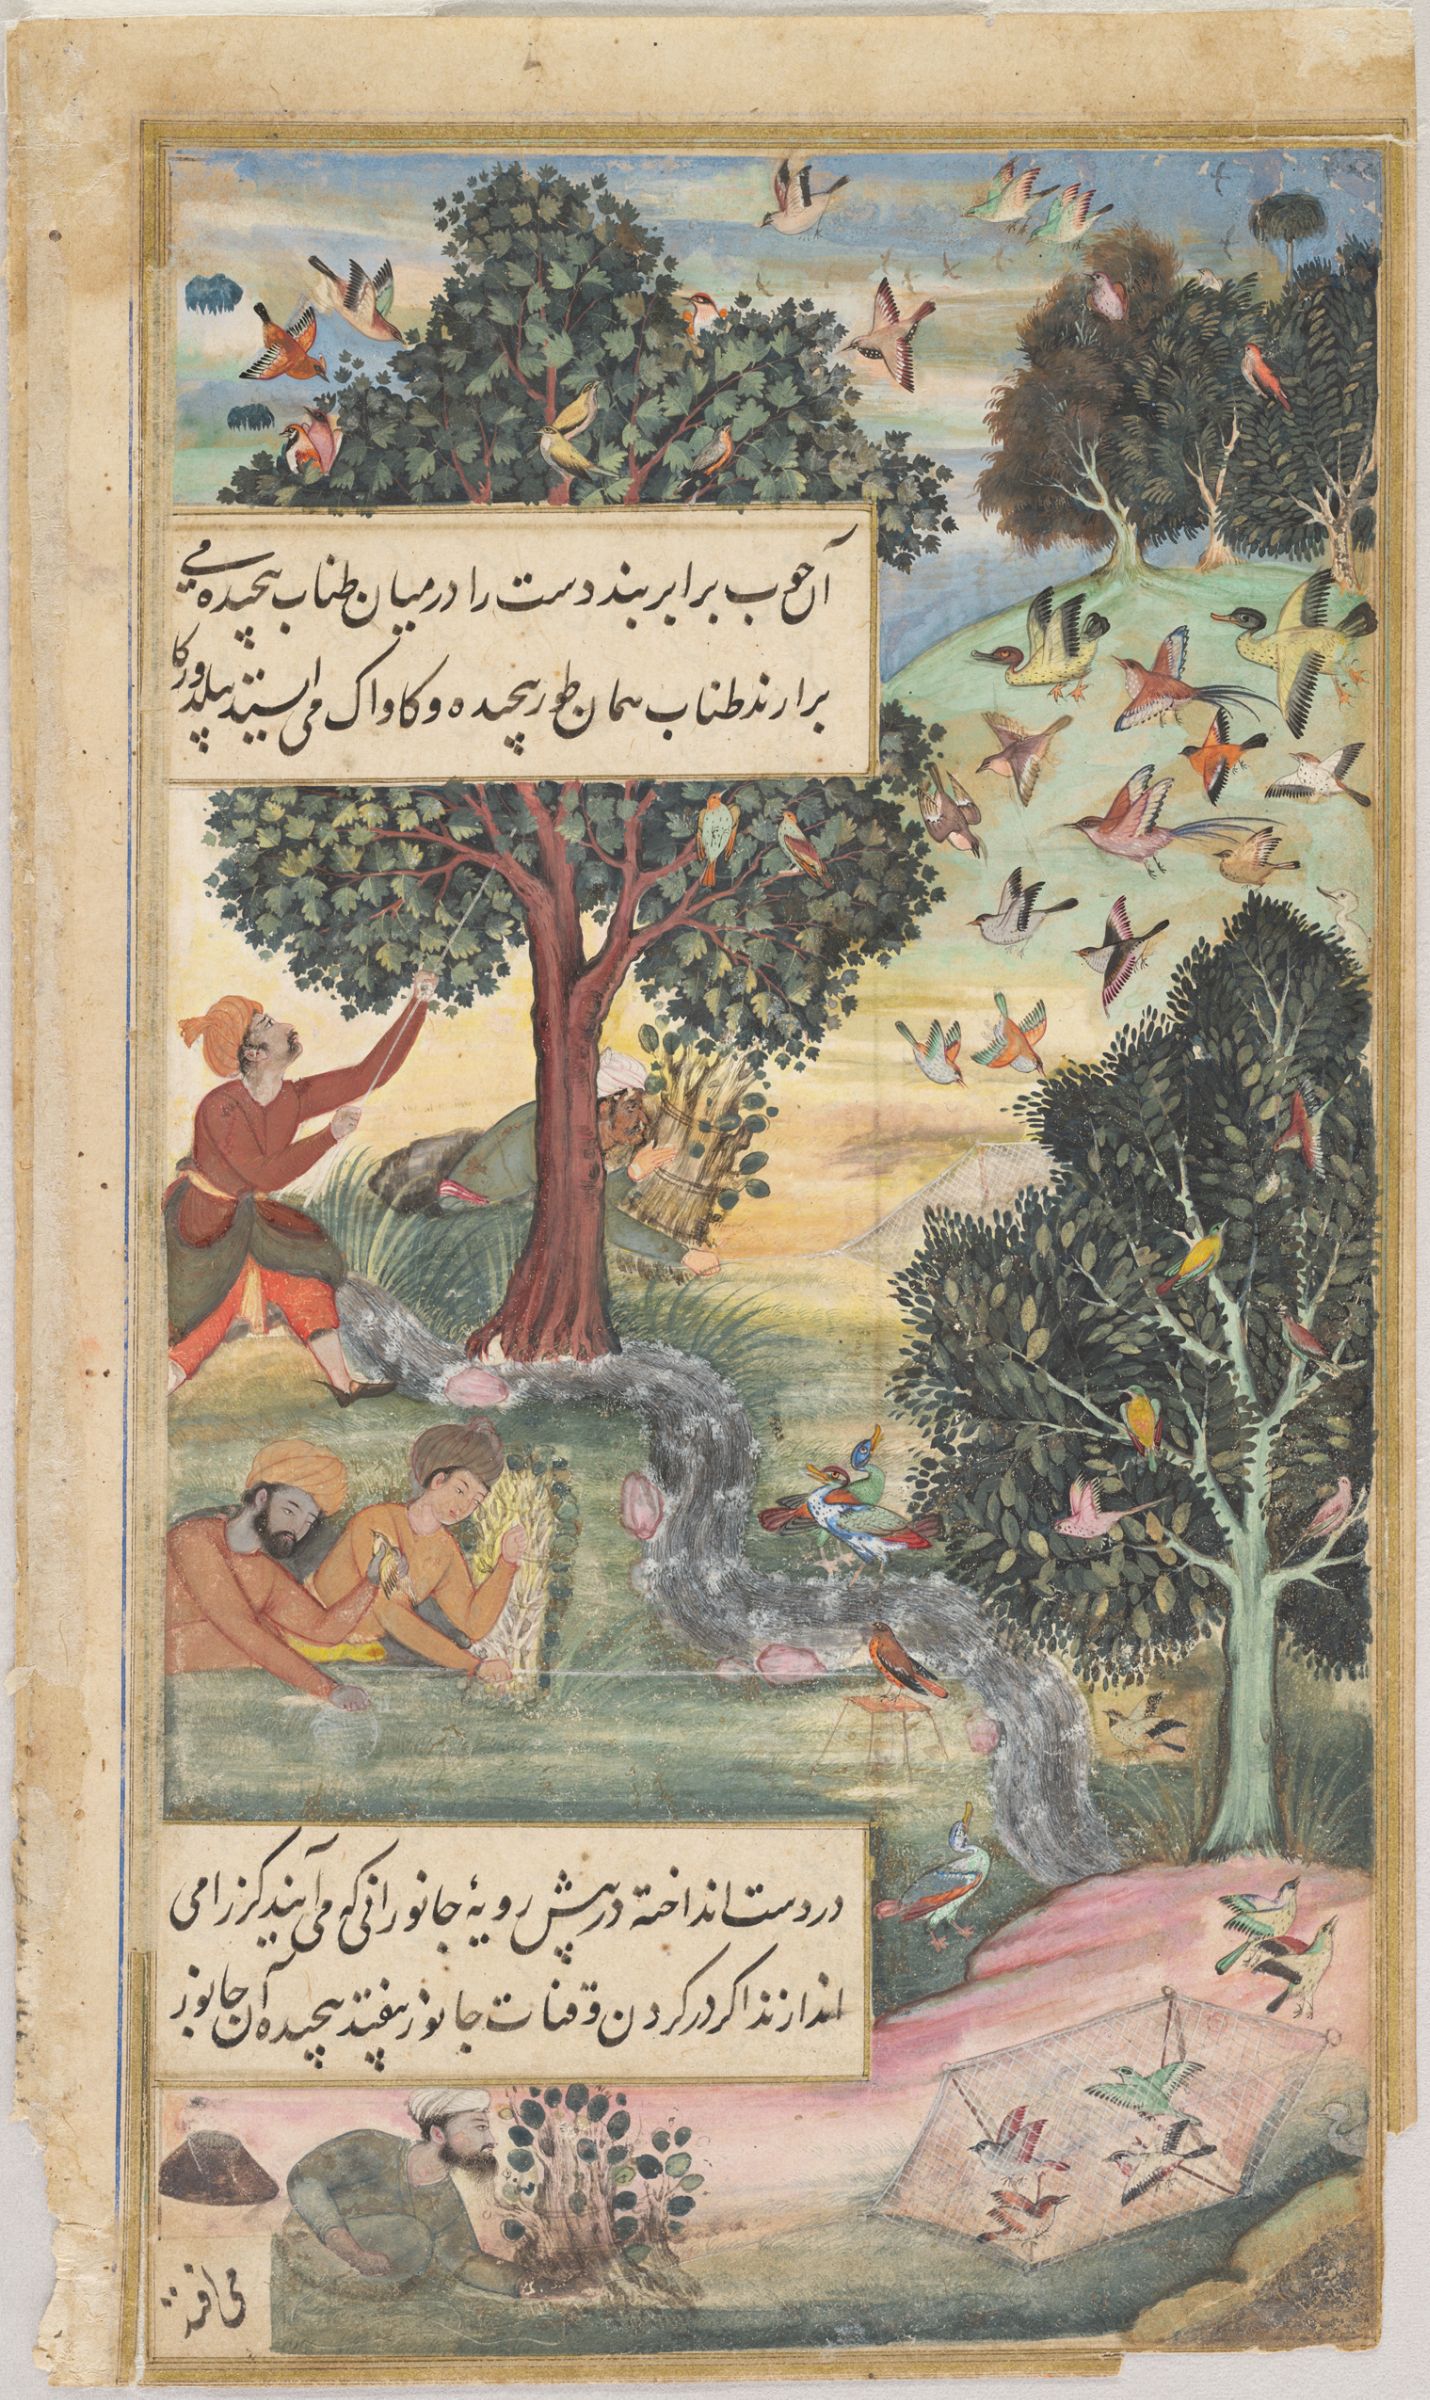 آن چوب برابر بند دست را در میان طناب پیچیده می
برارند طناب همان طور پیچیده و کاواک می استد پیلدور کا
در دست انداخته در پیش رویهٔ جانورانی که می آیند کرز را می
اندازند اکر در کردن قنات جانور بیفتد پیچیده آن جانور
می افتد